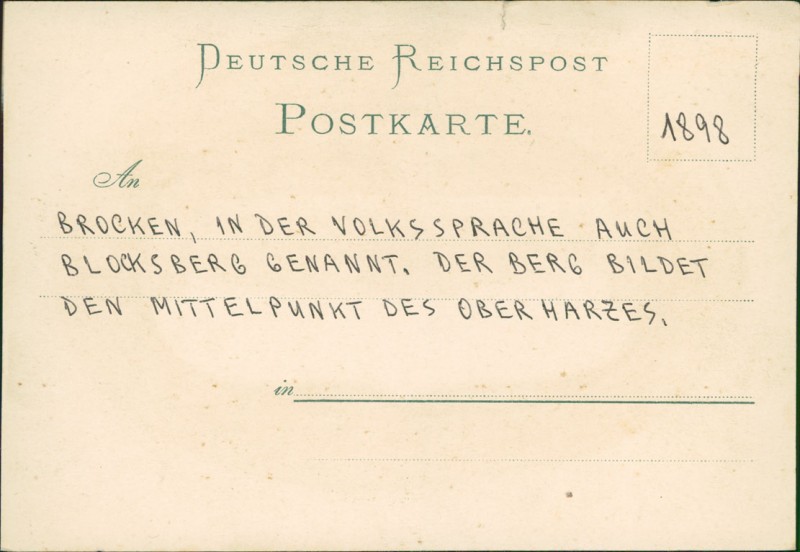 DEUTSCHE REICHSPOST
POSTKARTE.
1898
An
BROCKEN, IN DER VOLKSSPRACHE AUCH
BLOCKSBERG GENANNT. DER BERG BILDET
DEN MITTELPUNKT DES OBERHARZES.
in